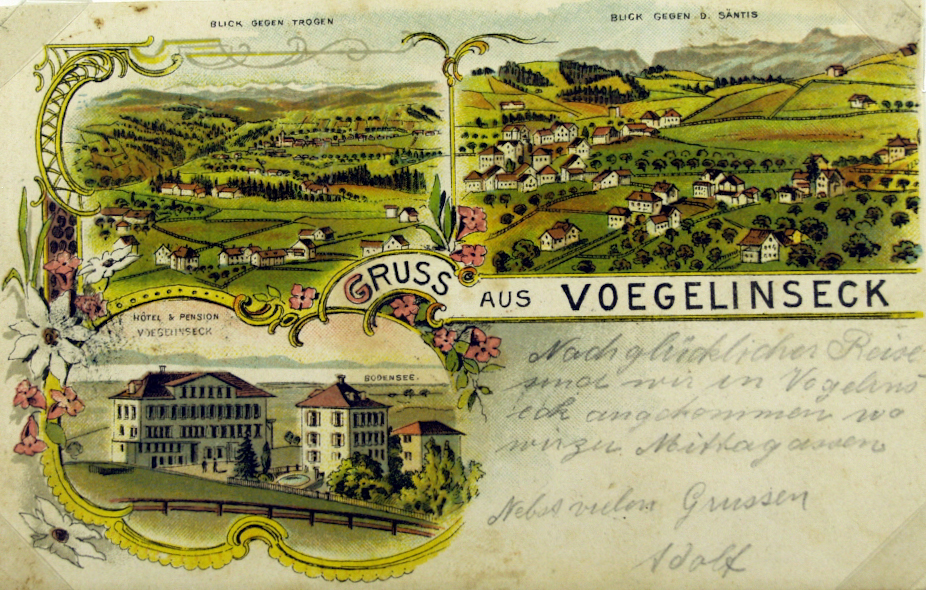 BLICK GEGEN TROGEN
BLICK GEGEN D. SÄNTIS
GRUSS AUS VOEGELINSECK
HÔTEL & PENSION
VOEGELINSECK
BODENSEE.
Nach glücklicher Reise
sind wir in Vogelins
eck angekommen wo
wir zu Mittag assen
Nebst vielen Grussen
Adolf